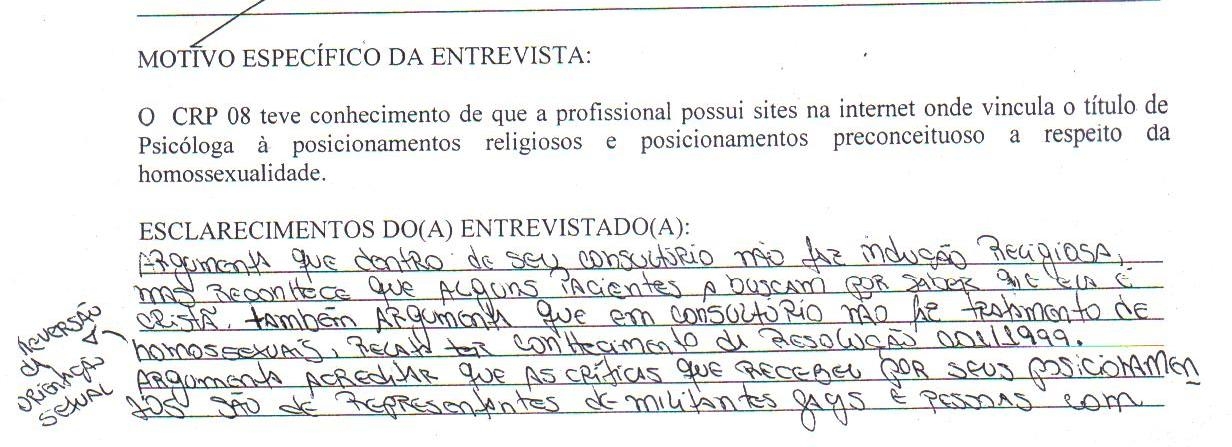 MOTIVO ESPECÍFICO DA ENTREVISTA:
O CRP 08 teve conhecimento de que a profissional possui sites na internet onde vincula o título de
Psicóloga à posicionamentos religiosos e posicionamentos preconceituoso a respeito da
homossexualidade.
ESCLARECIMENTOS DO(A) ENTREVISTADO(A):
ARGUMENTA QUE DENTRO DE SEU CONSULTÓRIO NÃO FAZ INDUÇÃO RELIGIOSA,
MAS RECONHECE QUE ALGUNS PACIENTES A BUSCAM POR SABER QUE ELA É
CRISTÃ. TAMBÉM ARGUMENTA QUE EM CONSULTÓRIO NÃO FAZ TRATAMENTO DE
HOMOSSEXUAIS, RELATA TER CONHECIMENTO DA RESOLUÇÃO 001/1999.
ARGUMENTA ACREDITAR QUE AS CRÍTICAS QUE RECEBEU POR SEUS POSICIONAMEN
TOS SÃO DE REPRESENTANTES DE MILITANTES GAYS E PESSOAS COM
REVERSÃO
DA
ORIENTAÇÃO
SEXUAL